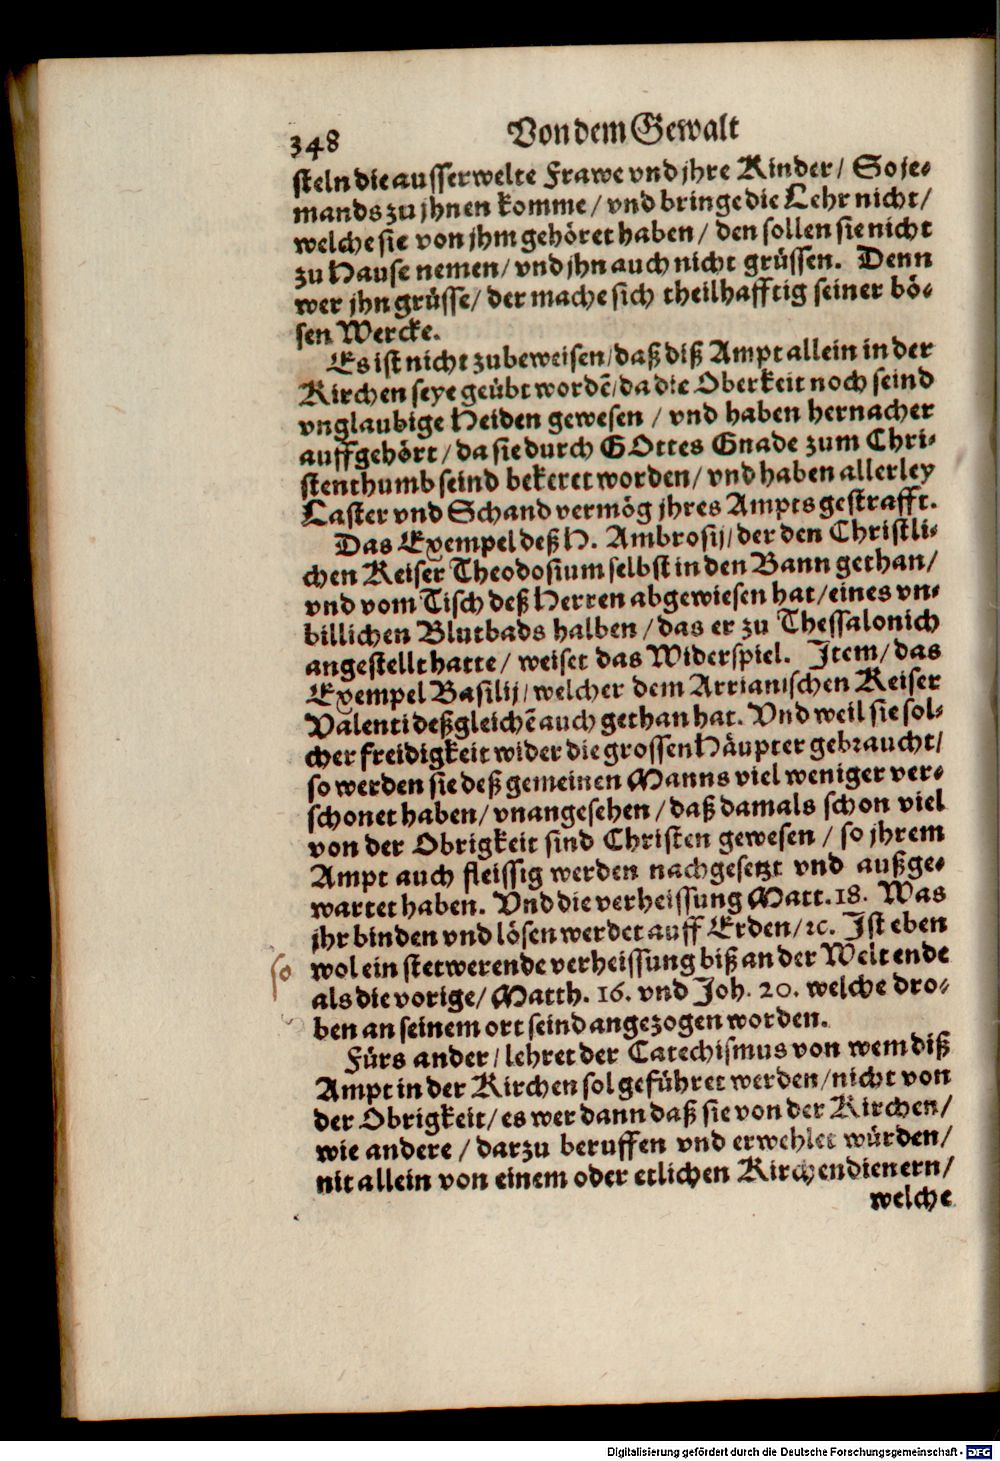 348
Von dem Gewalt
steln die ausserwelte Frawe vnd jhre Kinder / So je-
mands zu jhnen komme / vnd bringe die Lehr nicht /
welche sie von jhm gehöret haben / den sollen sie nicht
zu Hause nemen / vnd jhn auch nicht grüssen. Denn
wer jhn grüsse / der mache sich theilhafftig seiner bö-
sen Wercke.
Es ist nicht zubeweisen / daß diß Ampt allein in der
Kirchen seye geübt wordē / da die Oberkeit noch seind
vnglaubige Heiden gewesen / vnd haben hernacher
auffgehört / da sie durch GOttes Gnade zum Chri-
stenthumb seind bekeret worden / vnd haben allerley
Laster vnd Schand vermög jhres Ampts gestrafft.
Das Exempel deß H. Ambrosij / der den Christli-
chen Keiser Theodosium selbst in den Bann gethan /
vnd vom Tisch deß Herren abgewiesen hat / eines vn-
billichen Blutbads halben / das er zu Thessalonich
angestellt hatte / weiset das Widerspiel. Item / das
Exempel Basilij / welcher dem Arrianischen Keiser
Valenti deßgleichē auch gethan hat. Vnd weil sie sol-
cher freidigkeit wider die grossen Häupter gebraucht /
so werden sie deß gemeinen Manns viel weniger ver-
schonet haben / vnangesehen / daß damals schon viel
von der Obrigkeit sind Christen gewesen / so jhrem
Ampt auch fleissig werden nachgesetzt vnd außge-
wartet haben. Vnd die verheissung Matt. 18. Was
jhr binden vnd lösen werdet auff Erden / ꝛc. Ist eben
so wol ein stetwerende verheissung biß an der Welt ende
als die vorige / Matth. 16. vnd Joh. 20. welche dro-
ben an seinem ort seind angezogen worden.
Fürs ander / lehret der Catechismus von wem diß
Ampt in der Kirchen sol geführet werden / nicht von
der Obrigkeit / es wer dann daß sie von der Kirchen /
wie andere / darzu beruffen vnd erwehlet würden /
nit allein von einem oder etlichen Kirchendienern /
welche
Digitalisierung gefördert durch die Deutsche Forschungsgemeinschaft - DFG